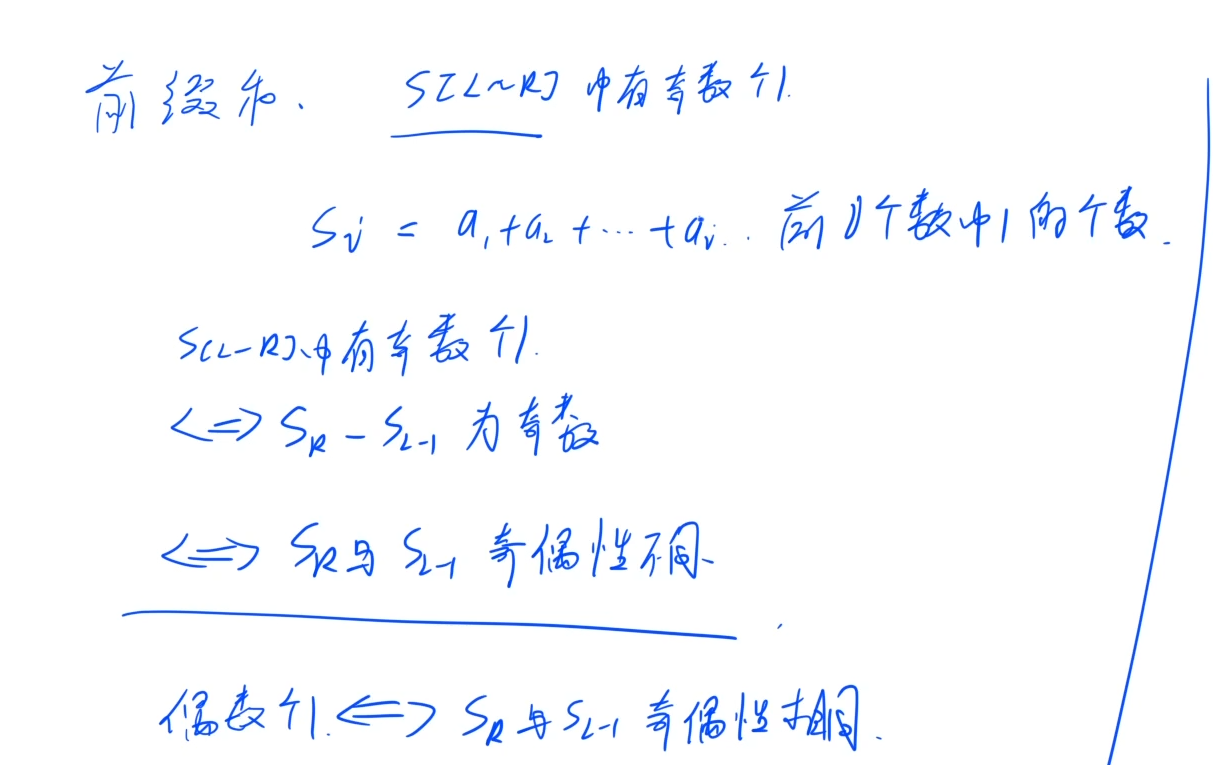 前缀和. S[L~R] 中有奇数个1.
Si = a1+a2+···+ai.. 前i个数中1的个数.
S[L-R]中有奇数个1.
<=> SR - SL-1 为奇数
<=> SR与 SL-1 奇偶性不同.
偶数个1. <=> SR与SL-1 奇偶性相同.